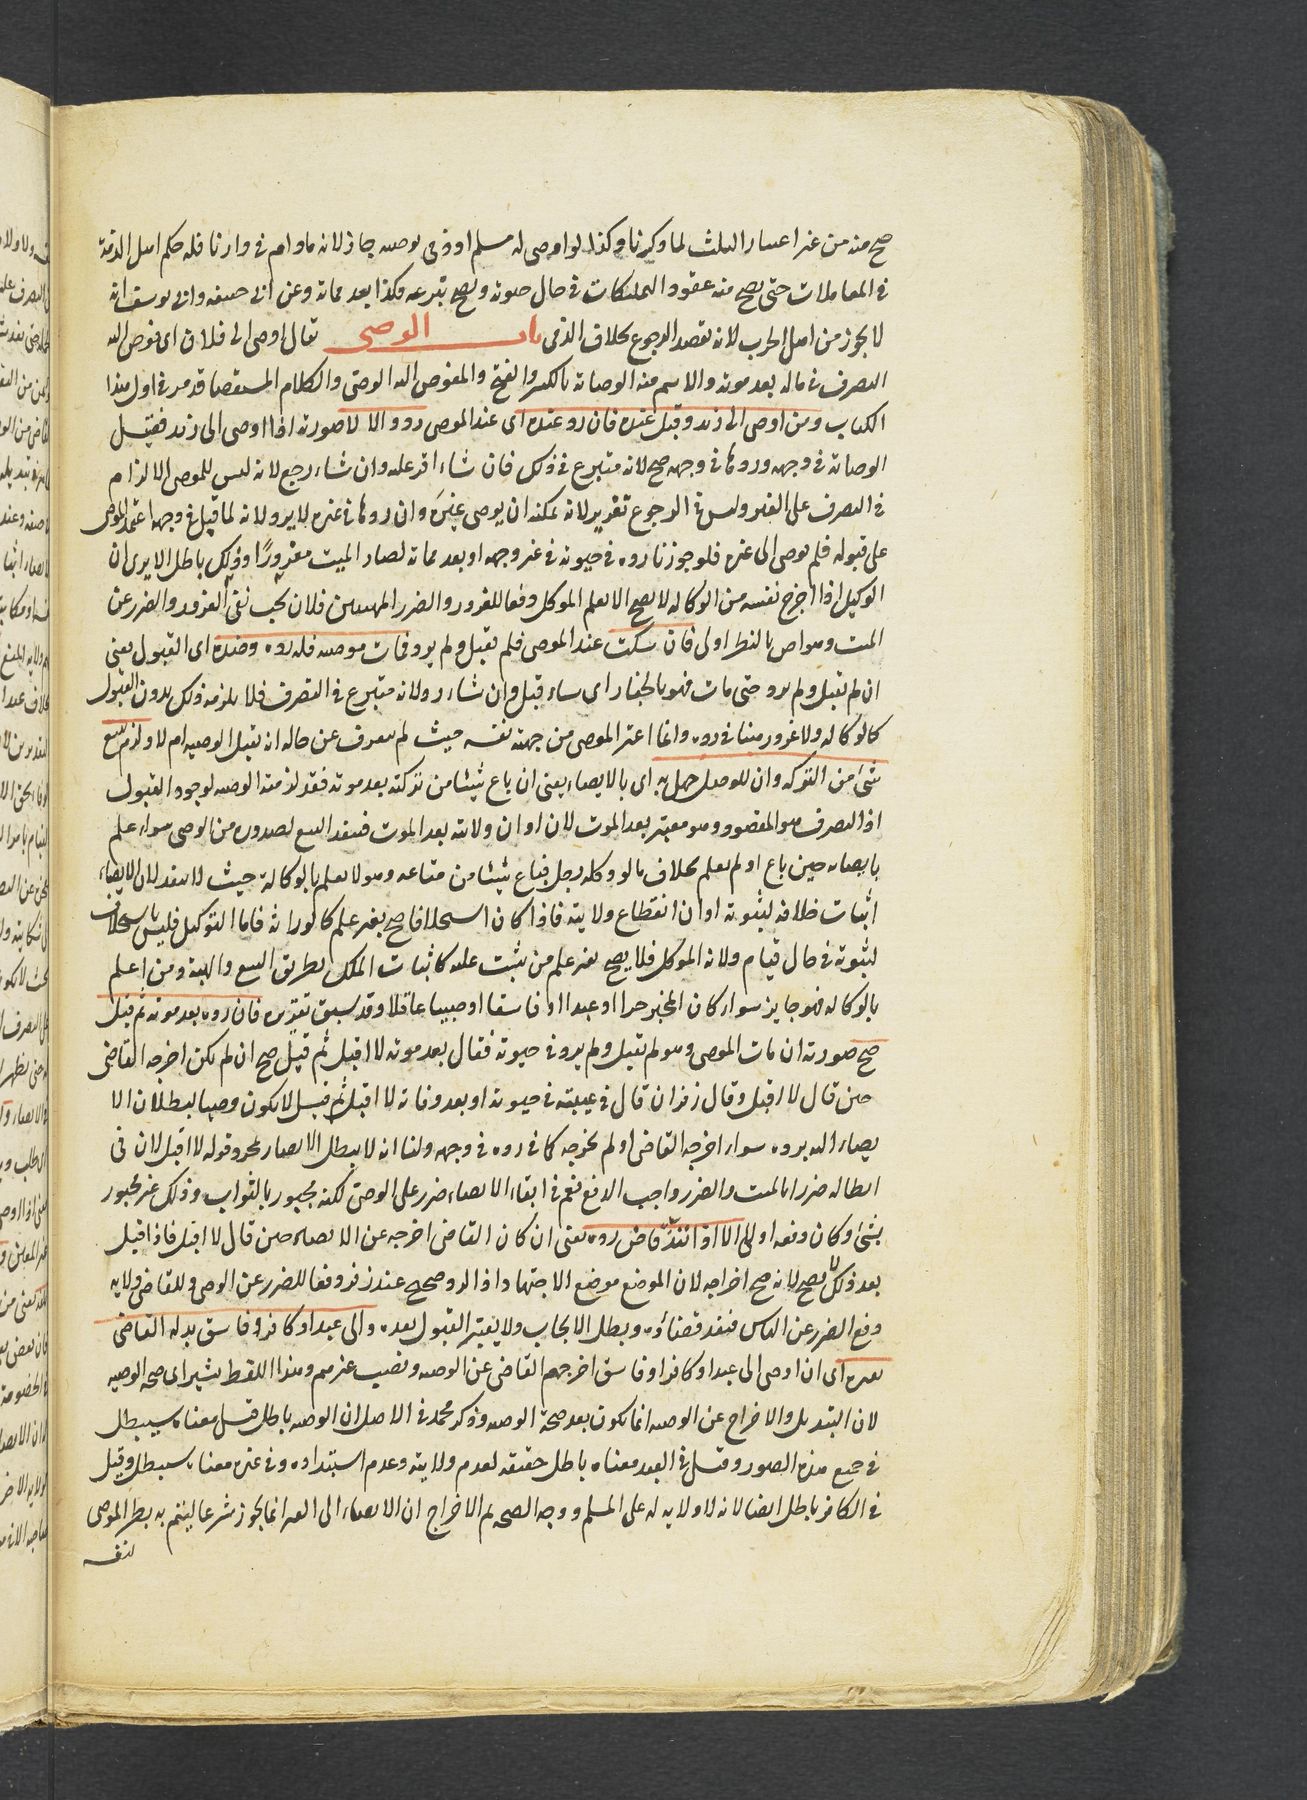 صح منه من غير اعتبار الثلث لما ذكرنا وكذا لو اوصى له مسلم او ذمى بوصيه جاز لانه ما دام فى دارنا فله حكم اهل الذمة
فى المعاملات حتى يصح منه عقود التمليكات فى حال حيوته ويصح تبرعه فكذا بعد مماته وعن ابى حنيفه وابى يوسف انه
لا يجوز من اهل الحرب لانه يقصد الرجوع بخلاف الذمى باب الوصى يقال اوصى الى فلان اى فوض اليه
التصرف فى ماله بعد موته والاسم منه الوصاية بالكسر والفتح والمفوض اليه الوصى والكلام المستقصا قد مر فى اول هذا
الكتاب ومن اوصى الى زيد وقبل عنده فان رد عنده اى عند الموصى رد والا لا صورته اذا اوصى الى زيد فقبل
الوصاية فى وجهه وردها فى وجهه صح لانه متبرع فى ذلك فان شاء اقر عليه وان شاء رجع لانه ليس للموصى الالزام
فى التصرف على الغير وليس فى الرجوع تغرير لانه يمكنه ان يوصى غيره وان ردها فى غيره لا يرد لانه لما قبل فى وجهه اعتمد الموصى
على قبوله فلم يوصى الى غيره فلو جوزنا رده فى حيوته فى غير وجهه او بعد مماته لصار الميت مغرورًا وذلك باطل الا يرى ان
الوكيل اذا اخرج نفسه من الوكاله لا يصح الا بعلم الموكل دفعا للغرور والضرر فلان يجب نفى الغرور والضرر عن
الميت وهو احق بالنظر اولى فان سكت عند الموصى فلم يقبل ولم يرد فمات موصيه فله رده وضده اى القبول يعنى
ان لم يقبل ولم يرد حتى مات فهو بالخيار اى شاء قبل وان شاء رد لانه متبرع فى التصرف فلا يلزمه ذلك بدون القبول
كالوكاله ولا غرور منا فى رده وانما اغتر الموصى من جهة نفسه حيث لم يتعرف عن حاله انه يقبل الوصيه ام لا ولزم ببيع
شئ من التركه وان جهل به اى بالايصاء يعنى ان باع شيئا من تركته بعد موته فقد لزمته الوصيه لوجود القبول
اذ التصرف هو المقصود وهو معتبر بعد الموت لان اوان ولايته بعد الموت فينفذ البيع لصدوره من الوصى سواء علم
بايصائه حين باع او لم يعلم بخلاف ما لو وكله رجل فباع شيئا من متاعه وهو لا يعلم بالوكالة حيث لا ينفذ لان الايصاء
اثبات خلافه لثبوته اوان انقطاع ولايته فاذا كان استخلافا صح بغير علم كالوراثه فاما التوكيل فليس باستخلاف
لثبوته فى حال قيام ولاية الموكل فلا يصح بغير علم من يثبت عليه كاثبات الملك بطريق البيع والهبة ومن اعلم
بالوكاله فهو جايز سواء كان المخبر حرا او عبدا او فاسقا او صبيا عاقلا وقد سبق تقريره فان رد بعد موته ثم قبل
صح صورته ان مات الموصى وهو لم يقبل ولم يرد فى حيوته فقال بعد موته لا اقبل ثم قبل صح ان لم يكن اخرجه القاضى
حين قال لا اقبل وقال زفر ان قال فى غيبته فى حيوته او بعد وفاته لا اقبل ثم قبل لا يكون وصيا لبطلان الا
يصاء اليه برده سواء اخرجه القاضى او لم يخرجه كما فى رده فى وجهه ولنا انه لا يبطل الايصاء بمجرد قوله لا اقبل لان فى
ابطاله ضررا بالميت والضرر واجب الدفع نعم فى ابقاء الايصاء ضرر على الوصى لكنه مجبور بالثواب وذلك غير مجبور
بشئ وكان دفعه اولى الا اذا نفذ قاض رده يعنى ان كان القاضى اخرجه عن الايصاء حين قال لا اقبل فاذا قبل
بعد ذلك لا يصح لانه صح اخراجه لان الموضع موضع الاجتهاد اذ الرد صحيح عند زفر دفعا للضرر عن الوصى وللقاضى ولايه
دفع الضرر عن الناس فينفذ قضاؤه ويبطل الايجاب ولا يعتبر القبول بعده والى عبد او كافر او فاسق بدله القاضى
بغيره اى ان اوصى الى عبد او كافر او فاسق اخرجهم القاضى عن الوصيه ونصب غيرهم وهذا اللفظ يشير الى صحه الوصيه
لان التبديل والاخراج عن الوصيه انما يكون بعد صحة الوصيه وذكر محمد فى الاصل ان الوصيه باطل قيل معناه سيبطل
فى جميع هذه الصور وقيل فى العبد معناه باطل حقيقه لعدم ولايته وعدم استبداده وفى غيره معناه سيبطل وقيل
فى الكافر باطل ايضا لانه لا ولايه له على المسلم ووجه الصحه ثم الاخراج ان الايصاء الى الغير انما يجوز شرعا ليتم به نظر الموصى
لنفسه